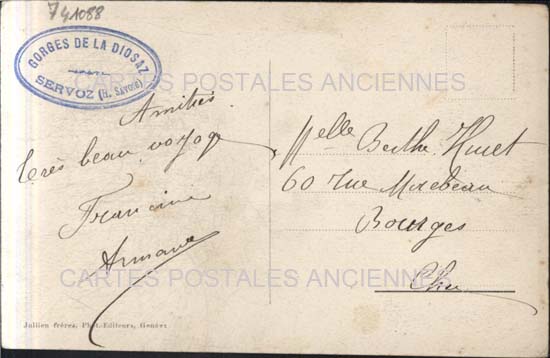 741088
GORGES DE LA DIOSAZ
SERVOZ (H. SAVOIE)
CARTES POSTALES ANCIENNES
Amitiés
Très beau voyage
Francine
Armand
Mlle Berthe Huret
60 rue Mirebeau
Bourges
Cher
CARTES POSTALES ANCIENNES
Jullien frères, Phot.-Editeurs, Genève